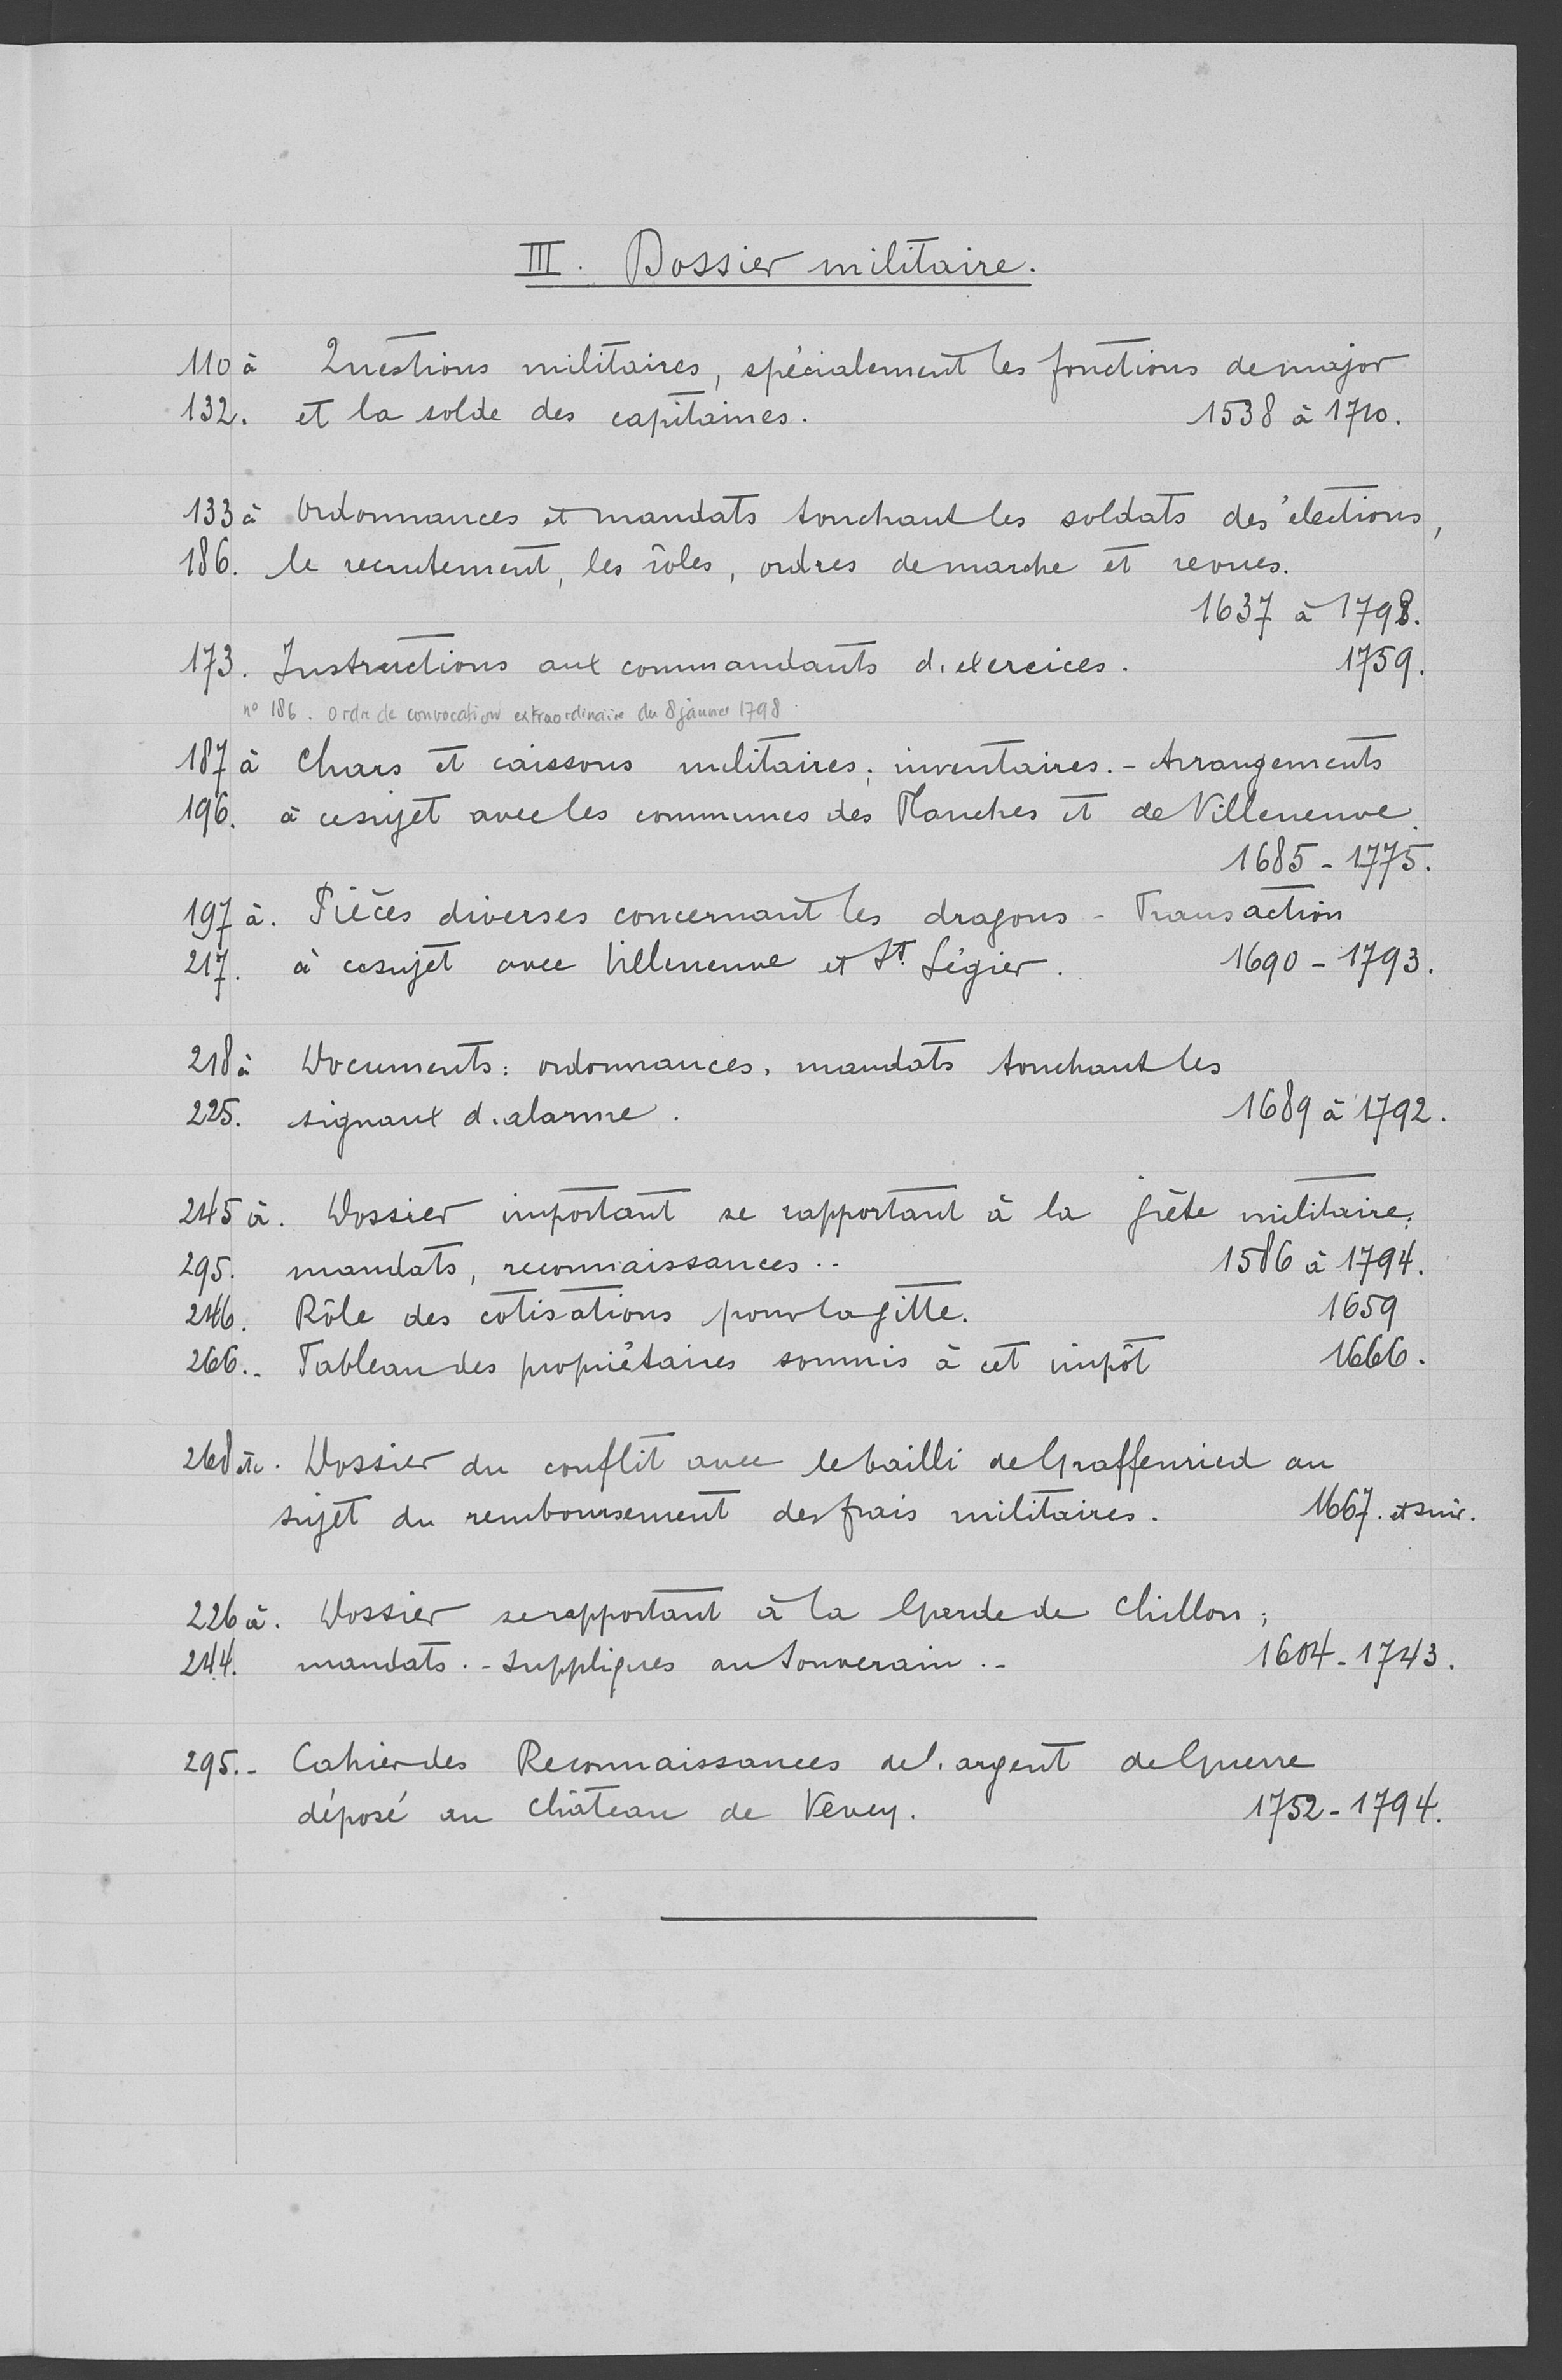 III. Dossier militaire.
110 à Questions militaires, spécialement les fonctions de major
132. et la solde des capitaines. 1538 à 1710.
133 à Ordonnances et mandats touchant les soldats des élections,
186. le recrutement, les rôles, ordres de marche et revues.
1637 à 1798.
173. Instructions aux commandants d'exercices. 1759.
n° 186. Ordre de convocation extraordinaire du 8 janvier 1798
187 à Chars et caissons militaires; inventaires. - Arrangements
196. à ce sujet avec les communes des Planches et de Villeneuve.
1685 - 1775.
197 à. Pièces diverses concernant les dragons - Transaction
217. à ce sujet avec Villeneuve et St. Légier. 1690 - 1793.
218 à Documents: ordonnances, mandats touchant les
225. signaux d'alarme. 1689 à 1792.
245 à. Dossier important se rapportant à la giète militaire;
295. mandats, reconnaissances.. 1586 à 1794.
246. Rôle des cotisations pour la gitte. 1659
266.. Tableau des propriétaires soumis à cet impôt 1666.
268 etc. Dossier du conflit avec le bailli de Graffenried au
sujet du remboursement des frais militaires. 1667. et suiv.
226 à. Dossier se rapportant à la Garde de Chillon;
244. mandats. - Suppliques au Souverain. - 1604 - 1743.
295. - Cahier des Reconnaissances de l'argent de Guerre
déposé au Château de Vevey. 1752 - 1794.